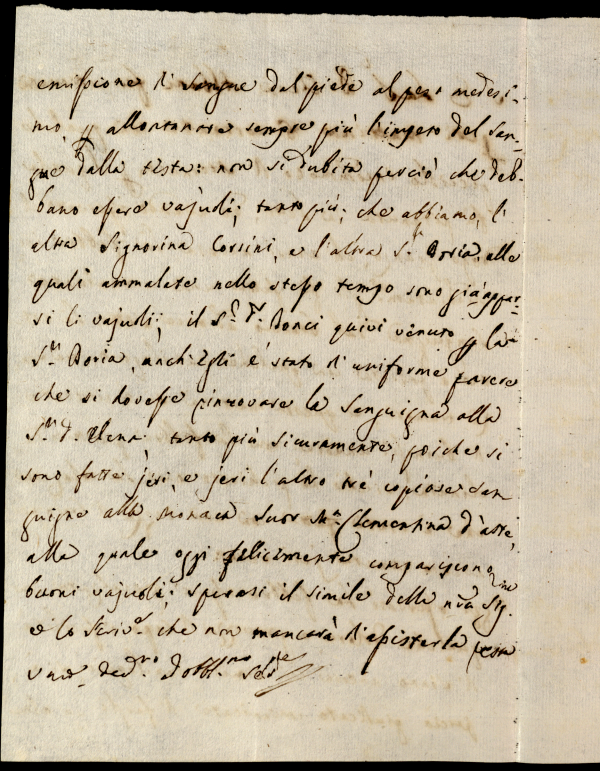 emissione di sangue dal piede al pezo medesi-
mo, p allontanare sempre più l'impeto del San-
gue dalla testa: non si dubita perciò che deb-
bano essere vajuoli; tanto più; che abbiamo, l'
altra Signorina Corsini, e l'altra S.ra Doria, alle
quali ammalate nello stesso tempo sono già appar-
si li vajuoli; il S.r D.r Bonci quivi venuto p la
S.ra Doria, anch'Egli è stato d'uniforme parere
che si dovesse rinnovare la Sanguigna alla
S.ra D. Elena; tanto più sicuramente, poiche si
sono fatte jeri, e jeri l'altro trè copiose san
guigne alla Monaca Suor Ma. Clementina d'Aste,
alla quale oggi felicemente compariscono
buoni vajuoli; sperasi il simile della nra Sig.ne
e lo Scriv.e che non mancarà d'assisterla resta
devmo. Obblmo Serve